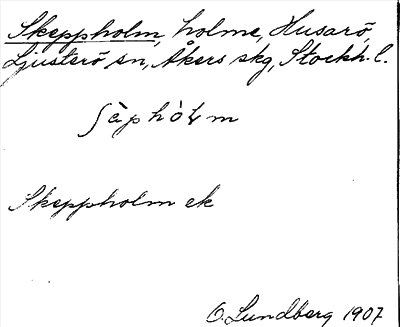 Skeppholm, holme, Husarö,
Ljusterö sn, Åkers skg, Stockh. l.
ʃàphòɫm
Skeppholm ek
O. Lundberg 1907